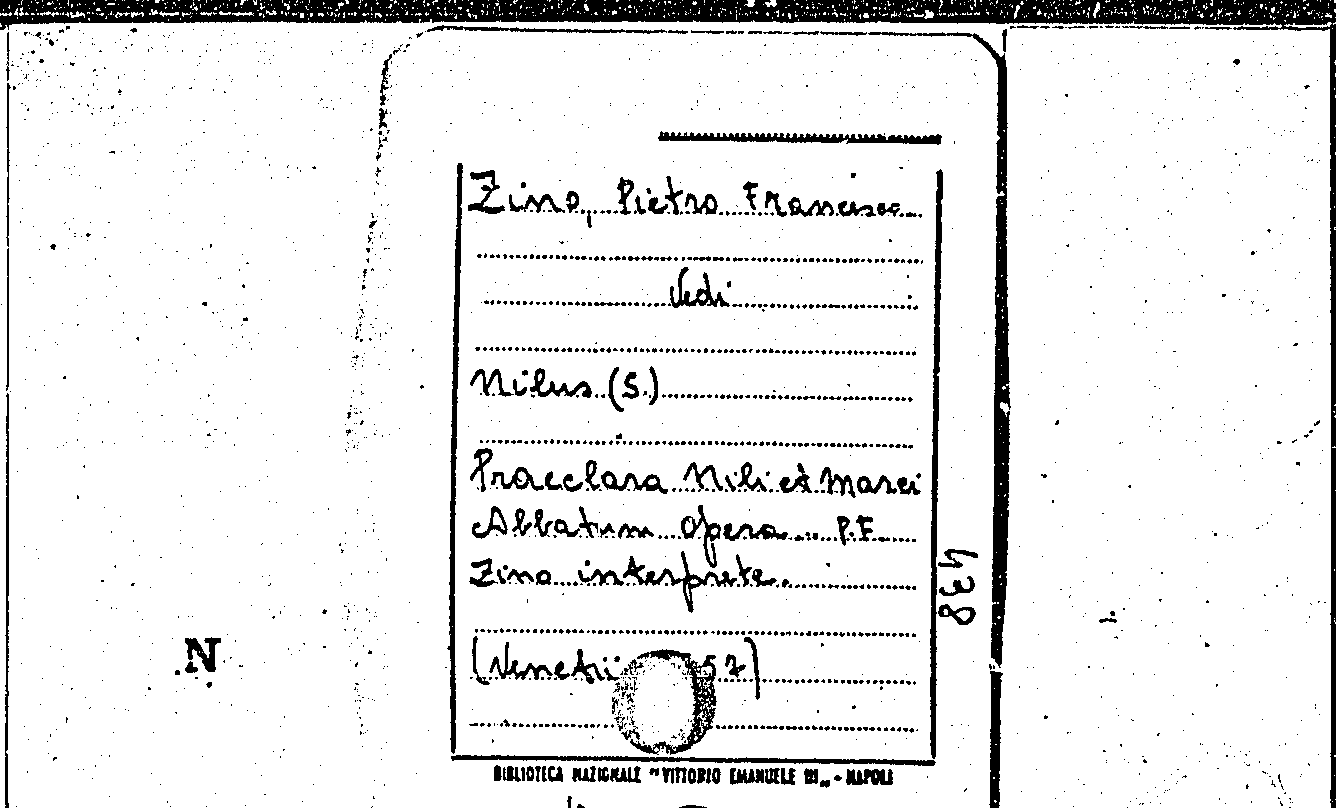 Zino, Pietro Francesco
Vedi
Nilus (S.)
Praeclara Nili et Marci
Abbatum opera... P.F.
Zino interprete.
(Venetii 57)
BIBLIOTECA NAZIONALE "VITTORIO EMANUELE III„ - NAPOLI
438
N